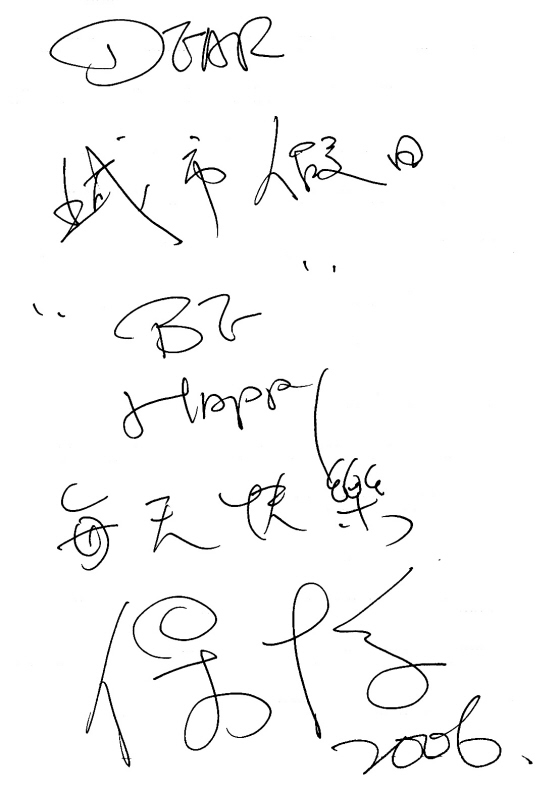 DEAR
城市假日
"BE
Happy"
每天快樂
2006.